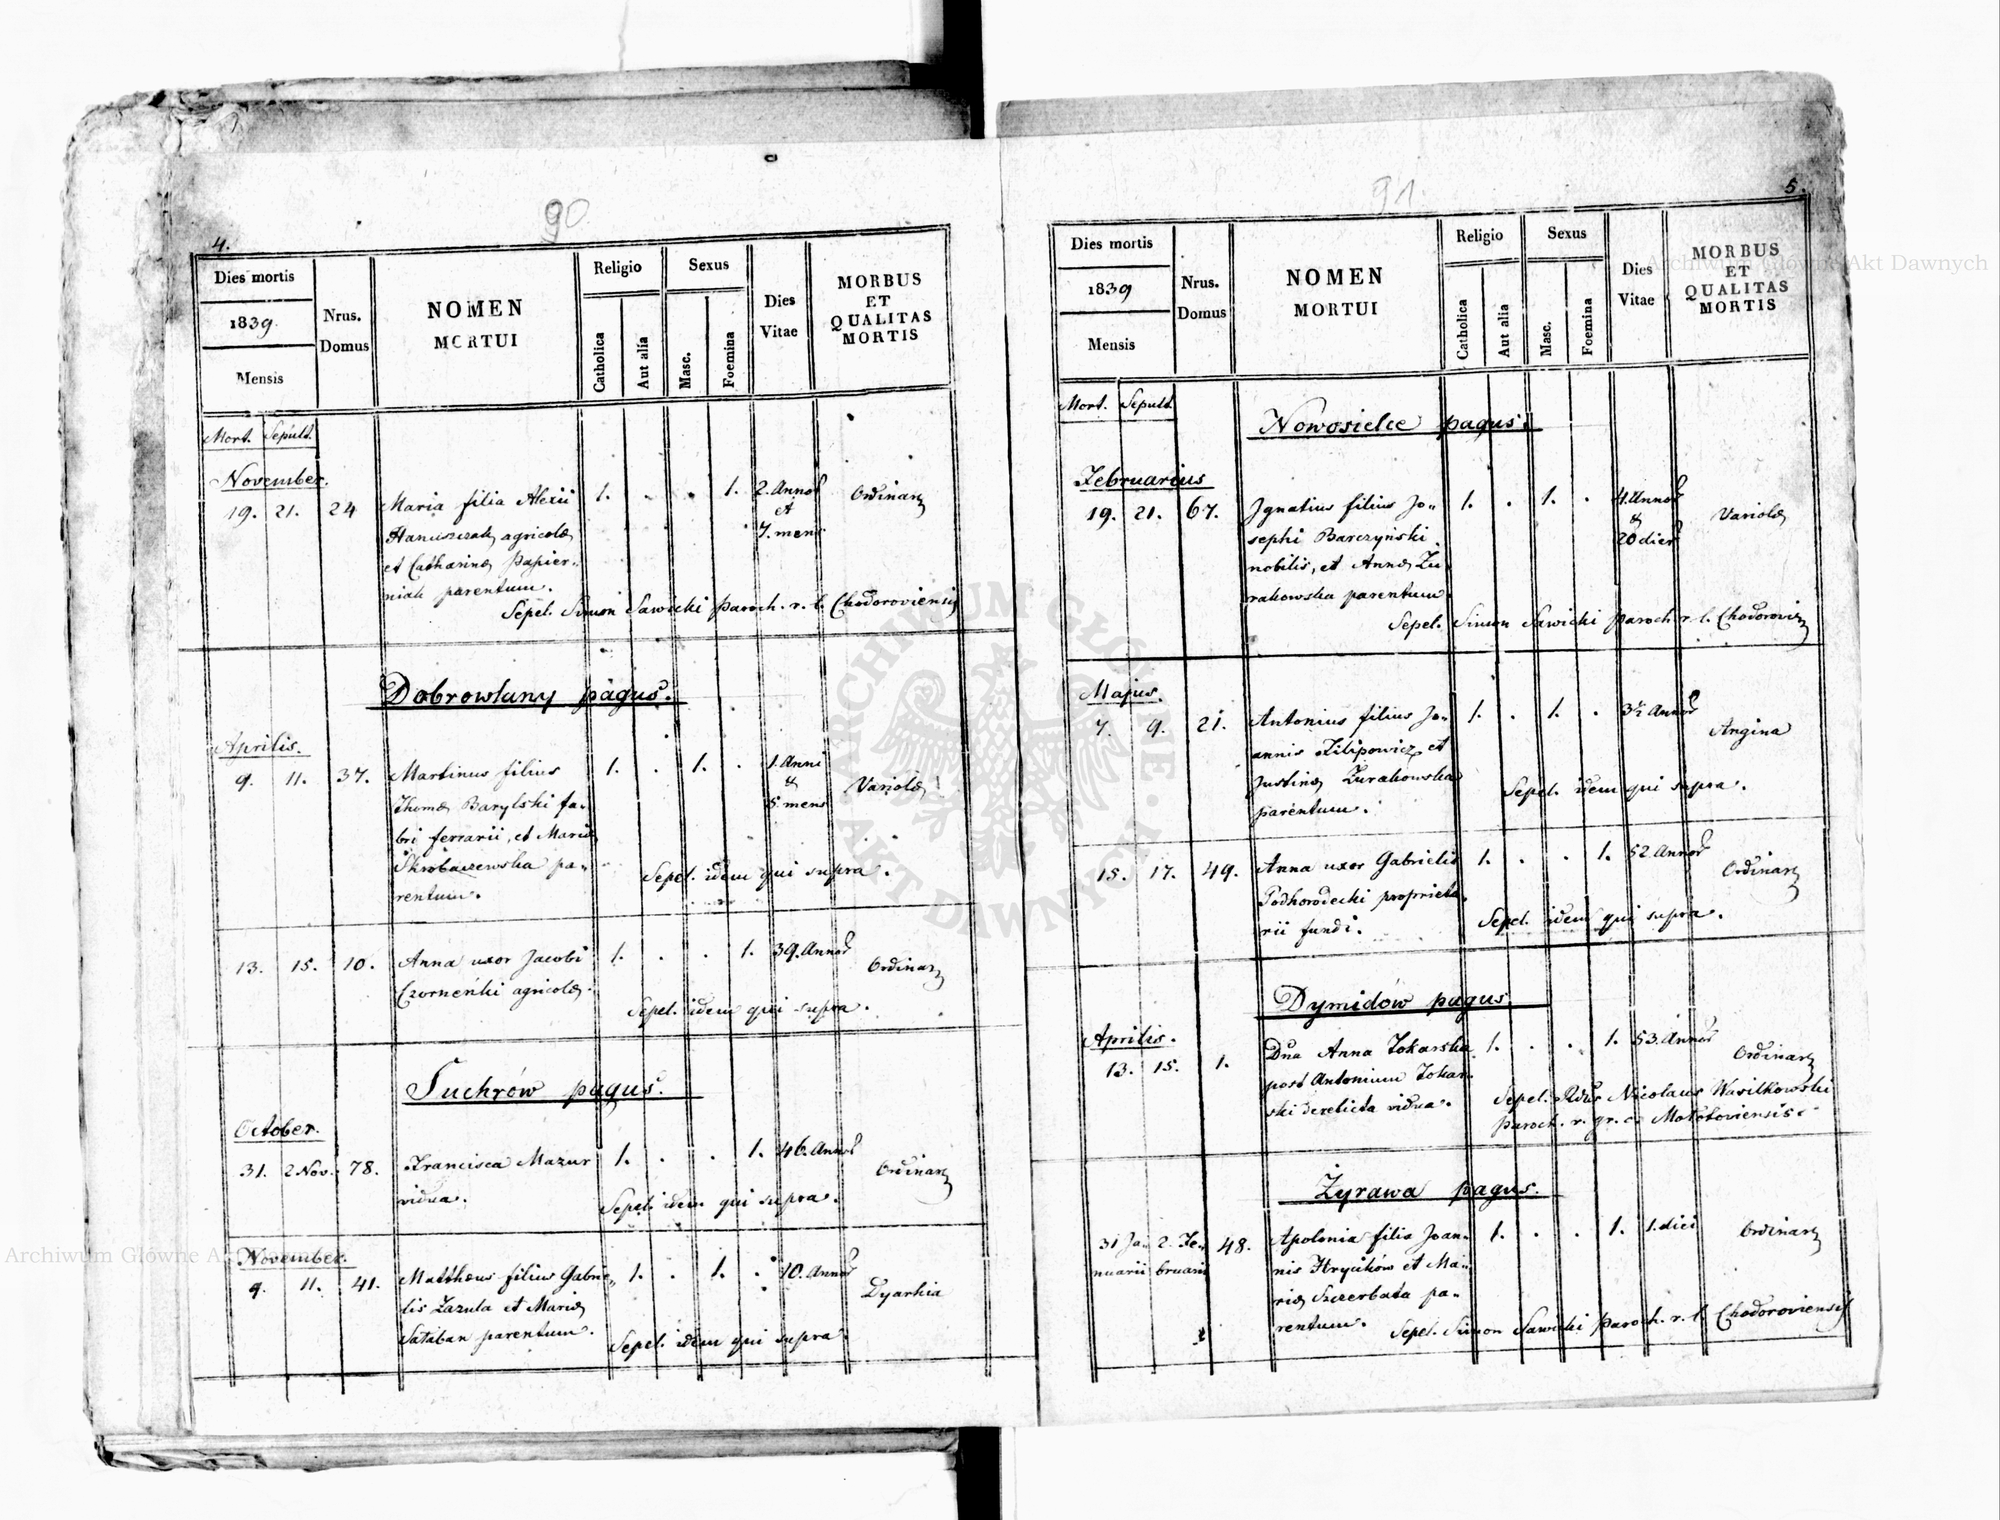 4.
90.
Dies mortis
1839.
Mensis
Nrus.
Domus
NOMEN
MORTUI
Religio
Catholica
Aut alia
Sexus
Masc.
Foemina
Dies
Vitae
MORBUS
ET
QUALITAS
MORTIS
Mort. Sepult.
November.
19. 21. 24 Maria filia Alexii 1. . . 1. 2. Annor Ordinar
et
Hanuszczak agricolæ 7. mens
et Catharinæ Papier-
niak parentum.
Sepel. Simon Sawicki Paroch. r. l. Chodoroviensis
Dobrowlany pagus.
Aprilis.
9. 11. 37. Martinus filius 1. . 1. . 1. Anni Variolæ
&
Thomæ Barylski fa- 5. mens
bri ferrarii, et Mariæ
Skrobaczewska pa-
rentum.
Sepel. idem qui supra.
13. 15. 10. Anna uxor Jacobi 1. . . 1. 39. Annor Ordinar
Czorneńki agricolæ.
Sepel. idem qui supra.
Tuchrów pagus.
October.
31. 2 Nov. 78. Francisca Mazur 1. . . 1. 46. Annor Ordinar
vidua.
Sepel. idem qui supra.
November.
9. 11. 41. Matthæus filius Gabrie- 1. . 1. . 10. Annor Dyarhia
lis Zazula et Mariæ
parentum.
Sepel. idem qui supra.
5.
91.
Dies mortis
1839
Mensis
Nrus.
Domus
NOMEN
MORTUI
Religio
Catholica
Aut alia
Sexus
Masc.
Foemina
Dies
Vitae
MORBUS
ET
QUALITAS
MORTIS
Mort. Sepult.
Nowosielce pagus.
Februarius
19. 21. 67. Ignatius filius Jo- 1. . 1. . 4. Annor Variolæ
&
sephi Barczyński 20 dier
nobilis, et Annæ Żu-
rakowska parentum.
Sepel. Simon Sawicki Paroch r. l. Chodorovien
Majus.
7. 9. 21. Antonius filius Jo- 1. . 1. . 3½ Annor Angina
annis Filipowicz et
Justinæ Żurakowska
parentum.
Sepel. idem qui supra.
15. 17. 49. Anna uxor Gabrielis 1. . . 1. 52. Annor Ordinar
Podhorodecki proprieta-
rii fundi.
Sepel. idem qui supra.
Dymidów pagus.
Aprilis.
13. 15. 1. Dna Anna Tokarska 1. . . 1. 53. Annor Ordinar
post Antonium Tokar-
ski derelicta vidua.
Sepel. Rdus Nicolaus Wasilkowski
paroch. r. gr. c. Mołotoviensis
Żyrawa pagus.
31 Ja- 2. Fe- 48. Apolonia filia Joan- 1. . . 1. 1. diei Ordinar
nuarii bruarii nis Hryćków et Ma-
riæ Szczerbata pa-
rentum.
Sepel. Simon Sawicki Paroch. r. l. Chodoroviensis
ARCHIWUM GŁÓWNE
AKT DAWNYCH
Archiwum Główne Akt Dawnych
Archiwum Główne Akt Dawnych